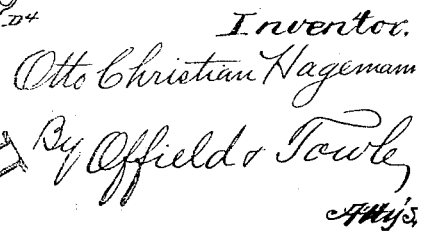 D4
Inventor.
Otto Christian Hagemann
By Offield & Towle,
Att'ys.